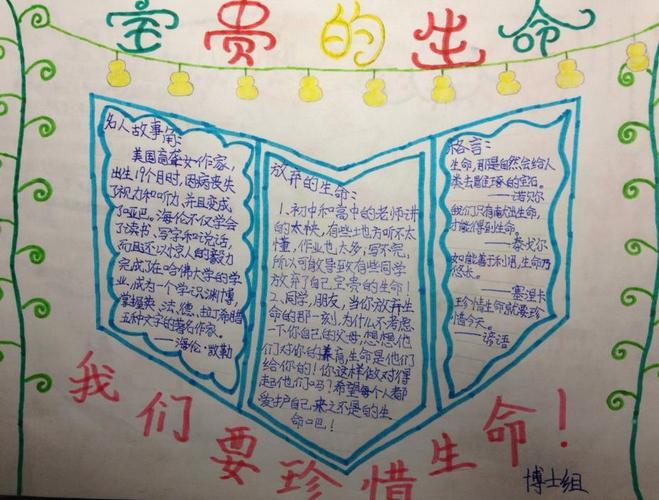 宝贵的生命
名人故事角:
美国盲聋女作家,
出生19个月时,因病丧失
了视力和听力,并且变成
了哑巴。海伦不仅学会
了读书、写字和说话,
而且还以惊人的毅力
完成了在哈佛大学的学
业,成为一个学识渊博,
掌握英、法、德、拉丁、希腊
五种文字的著名作家。
——海伦·凯勒
放弃的生命:
1、初中和高中的老师讲
的太快,有些地方听不太
懂,作业也太多,写不完,
所以可能导致有些同学
放弃了自己宝贵的生命!
2、同学,朋友,当你放弃生
命的那一刻,为什么不考虑
一下你自己的父母,想想他
们对你的养育,生命是他们
给你的!你这样做对得
起他们吗?希望每个人都
爱护自己来之不易的生
命吧!
格言:
生命,那是自然会给人
类去雕琢的宝石。
——诺贝尔
我们只有献出生命,
才能得到生命。
——泰戈尔
如能善于利用,生命乃
悠长。
——塞涅卡
珍惜生命就要珍
惜今天。
——谚语
我们要珍惜生命!
博士组